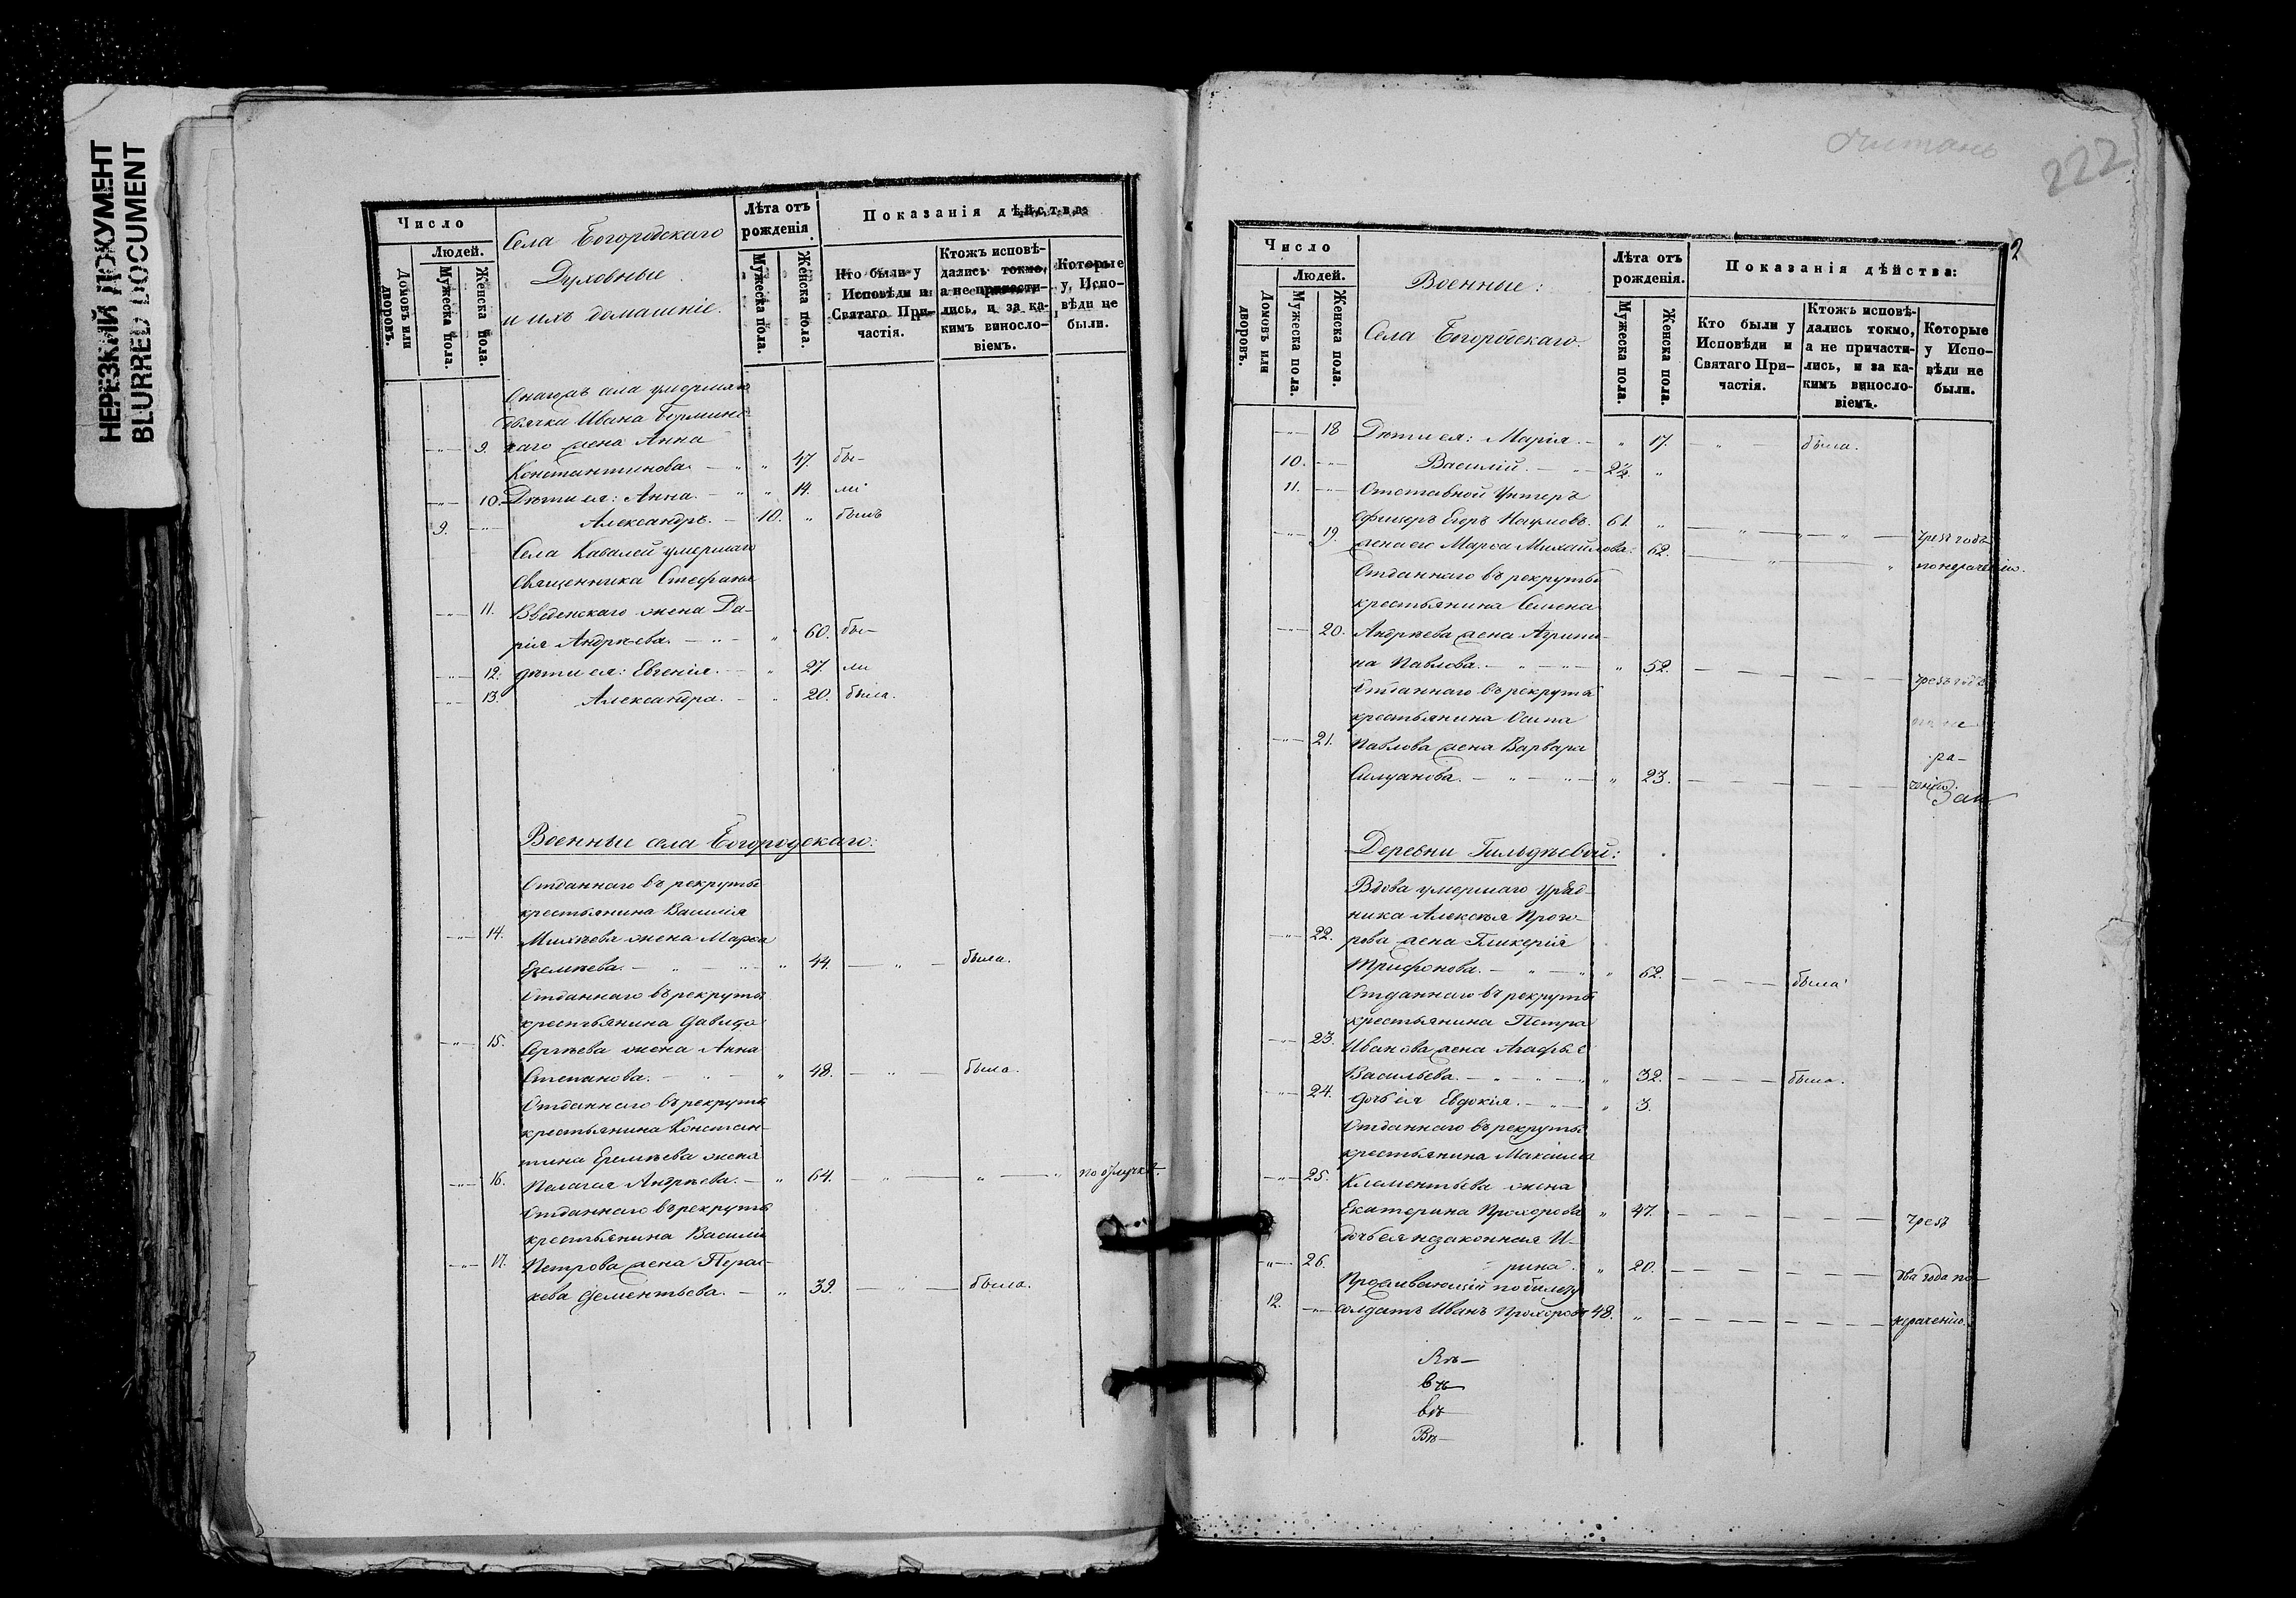 НЕРЕЗКИЙ ДОКУМЕНТ
BLURRED DOCUMENT
Число
Людей.
Домовъ или дворовъ.
Мужеска пола.
Женска пола.
Села Богородскаго
Духовные
и ихъ домашніе.
Лѣта отъ рожденія.
Мужеска пола.
Женска пола.
Показанія дѣйства:
Кто были у Исповѣди и Святаго Причастія.
Ктожъ исповѣдались токмо, а не причастились, и за какимъ винословіемъ.
Которые у Исповѣди не были.
Онагожъ села умершаго
дьячка Ивана
-"- 9. каго жена Анна
Константинова. - " " 47. бы-
-"- 10. Дѣти ея: Анна. - " " 14. ли
9. -"- Александръ. - 10. " былъ
Села Кавалей умершаго
Священника Стефана
-"- 11. Введенскаго жена Да-
рія Андрѣева. - " - " 60. бы-
-"- 12. дѣти ея: Евгенія. - " 27. ли
-"- 13. Александра. - " 20. была.
Военные села Богородскаго:
Отданнаго въ рекруты
крестьянина Василія
-"- 14. Михѣева жена Марѳа
Еремѣева. - " - " - " 44. - " - была.
Отданнаго въ рекруты
крестьянина Давида
-"- 15. Сергѣева жена Анна
Степанова. - " - " 48. - " - была.
Отданнаго въ рекруты
крестьянина Констан-
тина Еремѣева жена
-"- 16. Пелагея Андрѣева. - " 64. - " - " - " по отлучкѣ.
Отданнаго въ рекруты
крестьянина Василія
-"- 17. Петрова жена Парас-
кева Дементьева. - " 39. - " - была.
222
2
Число
Людей.
Домовъ или дворовъ.
Мужеска пола.
Женска пола.
Военные:
Села Богородскаго.
Лѣта отъ рожденія.
Мужеска пола.
Женска пола.
Показанія дѣйства:
Кто были у Исповѣди и Святаго Причастія.
Ктожъ исповѣдались токмо, а не причастились, и за какимъ винословіемъ.
Которые у Исповѣди не были.
-"- 18 Дѣти ея: Марія. - " 17. - " - была.
10. -"- Василій. - " - 2½. "
11. -"- Отставной Унтеръ
Офицеръ Егоръ Наумовъ. 61. " - " - " - чрезъ годъ
-"- 19. жена его Марѳа Михайлова. 62. - " - " по нераченію.
Отданнаго въ рекруты
крестьянина Семена
-"- 20. Андрѣева жена Агрипи-
на Павлова. - " - " - " 52. - - - - - чрезъ годъ
Отданнаго въ рекруты
крестьянина Осипа
-"- 21. Павлова жена Варвара
ра-
Силуанова. - " - " - " 23. - - - - - ченію.
Деревни Гильдѣевой:
Вдова умершаго Уряд-
ника Алексѣя Прохо-
-"- 22. рова жена Гликерія
Трифонова. - " - " " 62. - - - - была.
Отданнаго въ рекруты
крестьянина Петра
-"- 23. Иванова жена Агафья
Васильева. - " - " - " 32. - - - - была.
-"- 24. дочь ея Евдокія. - " - " 3.
Отданнаго въ рекруты
крестьянина Максима
-"- 25. Клементьева жена
Екатерина Прохорова " 47. - - - - - - чрезъ
дочь ея незаконная И-
-"- 26. рина. " 20. - - - - - - два года по
Проживающій по билету
12. -"- солдатъ Иванъ Прохоровъ 48. " - - - - - - нераченію.